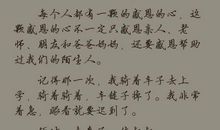 每个人都有一颗的感恩的心，这
颗感恩的心不一定只感恩亲人、老
师、朋友和爸爸妈妈，还要感恩帮助
过我们的陌生人。
记得那一次，我骑着车子去上
学，骑着骑着，车链子掉了。我非常
着急，眼看就要迟到了。